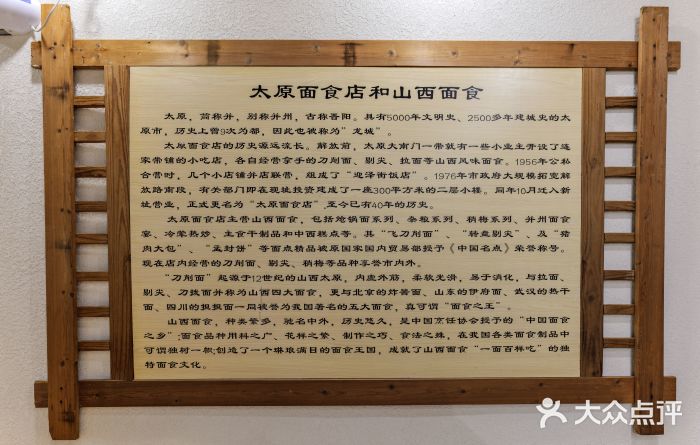 太原面食店和山西面食
太原，简称并，别称并州，古称晋阳。具有5000年文明史、2500多年建城史的太
原市，历史上曾9次为都，因此也被称为"龙城"。
太原面食店的历史源远流长。解放前，太原大南门一带就有一些小业主开设了连
家带铺的小吃店，各自经营拿手的刀削面、剔尖、拉面等山西风味面食。1956年公私
合营时，几个小店铺并店联营，组成了"迎泽街饭店"。1976年市政府大规模拓宽解
放路南段，有关部门即在现址投资建成了一座300平方米的二层小楼。同年10月迁入新
址营业，正式更名为"太原面食店"，至今已有40年的历史。
太原面食店主营山西面食，包括炝锅面系列、杂粮系列、稍梅系列、并州面食
宴、冷荤热炒、主食干制品和中西糕点等。其"飞刀削面"、"转盘剔尖"、及"猪
肉大包"、"孟封饼"等面点精品被原国家国内贸易部授予《中国名点》荣誉称号。
现在店内经营的刀削面、剔尖、稍梅等品种享誉市内外。
"刀削面"起源于12世纪的山西太原，内虚外筋，柔软光滑，易于消化，与拉面、
剔尖、刀拨面并称为山西四大面食，更与北京的炸酱面、山东的伊府面、武汉的热干
面、四川的担担面一同被誉为我国著名的五大面食，真可谓"面食之王"。
山西面食，种类繁多，驰名中外，历史悠久，是中国烹饪协会授予的"中国面食
之乡"；面食品种用料之广、花样之繁、制作之巧、食法之殊，在我国各类面食制品中
可谓独树一帜；创造了一个琳琅满目的面食王国，成就了山西面食"一面百样吃"的独
特面食文化。
大众点评